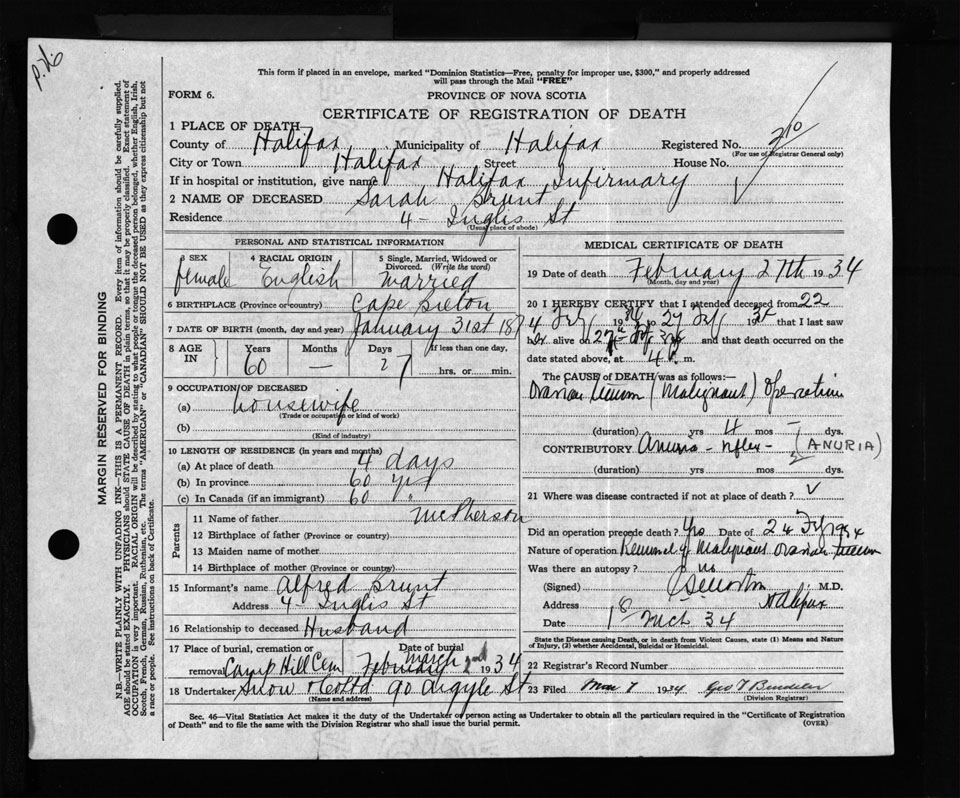 p.76
This form if placed in an envelope, marked "Dominion Statistics—Free, penalty for improper use, $300," and properly addressed
will pass through the Mail "FREE"
FORM 6.
PROVINCE OF NOVA SCOTIA
CERTIFICATE OF REGISTRATION OF DEATH
1 PLACE OF DEATH—
County of Halifax Municipality of Halifax Registered No. 210
(For use of Registrar General only)
City or Town Halifax Street House No.
If in hospital or institution, give name Halifax Infirmary
2 NAME OF DECEASED Sarah Brunt
Residence 4 - Inglis St
(Usual place of abode)
PERSONAL AND STATISTICAL INFORMATION
3 SEX 4 RACIAL ORIGIN 5 Single, Married, Widowed or
Divorced. (Write the word)
female English Married
6 BIRTHPLACE (Province or country) Cape Breton
7 DATE OF BIRTH (month, day and year) January 31st 187
8 AGE IN Years Months Days If less than one day,
60 — 27 hrs. or min.
9 OCCUPATION OF DECEASED
(a) housewife
(Trade or occupation or kind of work)
(b)
(Kind of industry)
10 LENGTH OF RESIDENCE (in years and months)
(a) At place of death 4 days
(b) In province 60 yrs
(c) In Canada (if an immigrant) 60 "
Parents
11 Name of father McPherson
12 Birthplace of father (Province or country)
13 Maiden name of mother
14 Birthplace of mother (Province or country)
15 Informant's name Alfred Brunt
Address 4 - Inglis St
16 Relationship to deceased Husband
17 Place of burial, cremation or removal Camp Hill Cem Date of burial February March 2nd 1934
18 Undertaker Snow & Co Ltd 90 Argyle St
(Name and address)
MEDICAL CERTIFICATE OF DEATH
19 Date of death February 27th 1934
(Month, day and year)
20 I HEREBY CERTIFY that I attended deceased from 22
4 Feb 19 34 to 27 Feb 19 34 that I last saw
her alive on 27th Feb and that death occurred on the
date stated above, at 4 P. m.
The CAUSE of DEATH was as follows:
Ovarian (Malignant) Operation
(duration) yrs 4 mos — dys.
CONTRIBUTORY Anuria - reflex - (ANURIA)
(duration) yrs mos 2 dys.
21 Where was disease contracted if not at place of death?
Did an operation precede death? Yes Date of 24 Feb 1934
Nature of operation Removal of Malignant Ovarian
Was there an autopsy? No
(Signed) M.D.
Address Halifax
Date 1 Mch 34
State the Disease causing Death, or in death from Violent Causes, state (1) Means and Nature
of Injury, (2) whether Accidental, Suicidal or Homicidal.
22 Registrar's Record Number
23 Filed Mar 7 1934 Geo
(Division Registrar)
Sec. 46—Vital Statistics Act makes it the duty of the Undertaker or person acting as Undertaker to obtain all the particulars required in the "Certificate of Registration
of Death" and to file the same with the Division Registrar who shall issue the burial permit. (OVER)
MARGIN RESERVED FOR BINDING
N.B.—WRITE PLAINLY WITH UNFADING INK—THIS IS A PERMANENT RECORD. Every item of information should be carefully supplied.
AGE should be stated EXACTLY. PHYSICIANS should STATE CAUSE OF DEATH in plain terms, so that it may be properly classified. Exact statement of
OCCUPATION is very important. RACIAL ORIGIN will be described by stating to what people or tongue the deceased person belonged, whether English, Irish,
Scotch, French, German, Russian, Ruthenian, etc. The terms "AMERICAN" or "CANADIAN" SHOULD NOT BE USED as they express citizenship but not
a race or people. See instructions on back of Certificate.